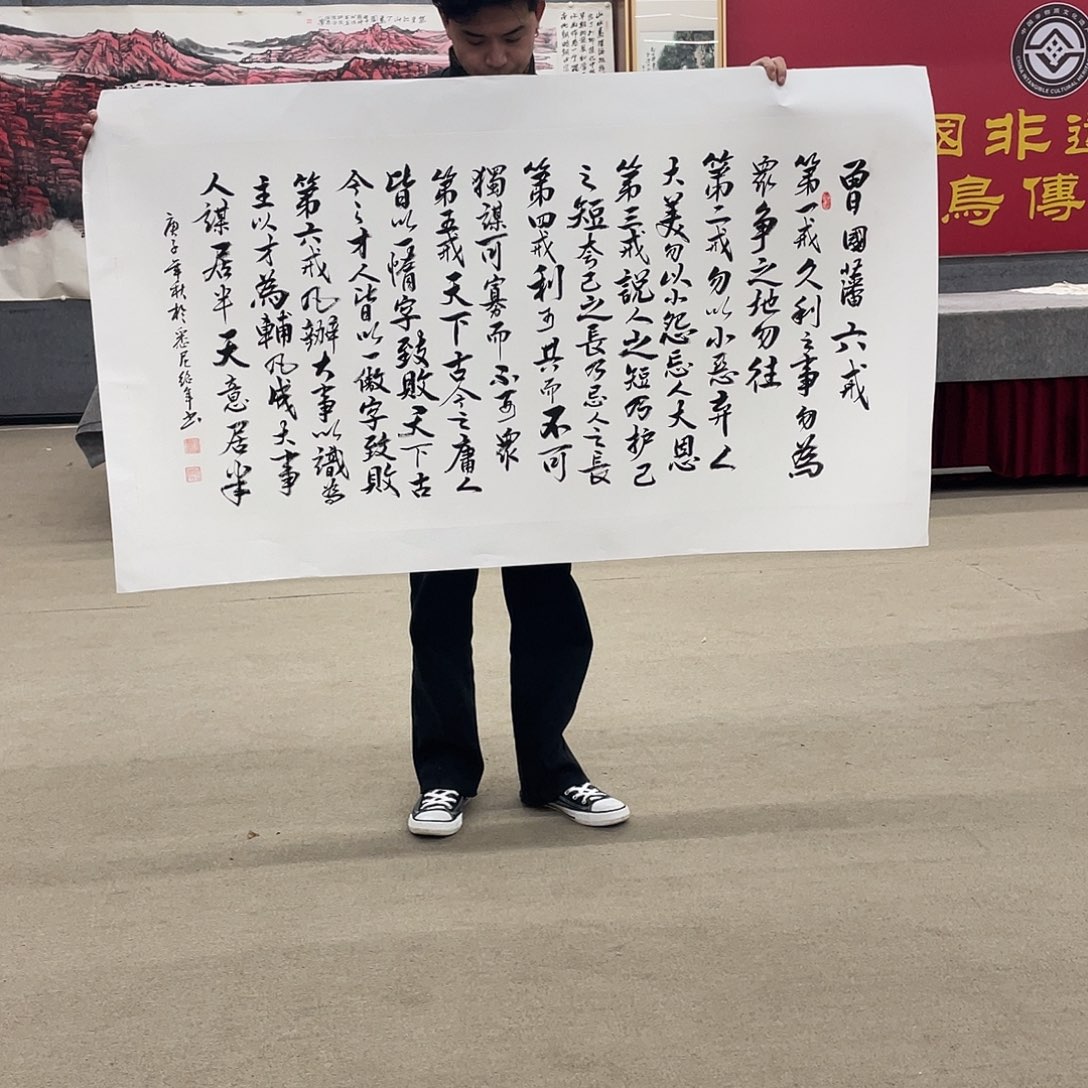 曾國藩六戒
第一戒久利之事勿為
眾争之地勿往
第二戒勿以小惡弃人
大美勿以小怨忘人大恩
第三戒說人之短乃护己
之短夸己之長乃忌人之長
第四戒利可共而不可
獨謀可寡而不可眾
第五戒天下古今之庸人
皆以一惰字致敗天下古
今之才人皆以一傲字致敗
第六戒凡辦大事以識為
主以才為輔凡成大事
人謀居半天意居半
庚子年秋於
國非遺
鳥傳